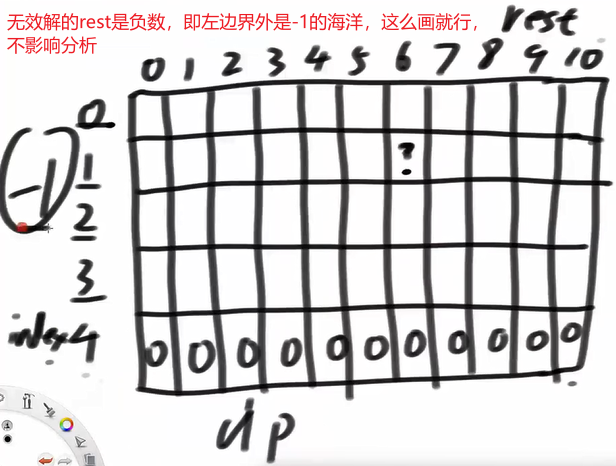 无效解的rest是负数，即左边界外是-1的海洋，这么画就行，
不影响分析
rest
0 1 2 3 4 5 6 7 8 9 10
0
1 ?
(-1)
2
3
index 4 0 0 0 0 0 0 0 0 0 0 0
dp